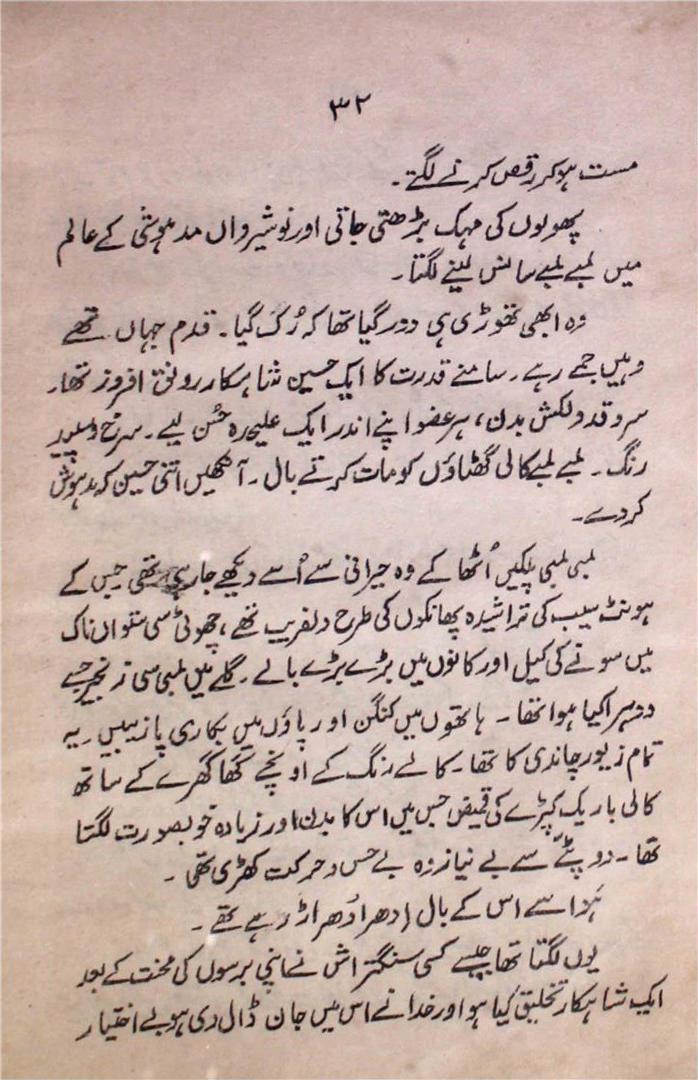 ۳۲
مست ہوکر رقص کرنے لگتے۔
پھولوں کی مہک بڑھتی جاتی اور نوشیرواں مدہوشی کے عالم
میں لمبے لمبے سانس لینے لگتا۔
وہ ابھی تھوڑی ہی دور گیا تھا کہ رُک گیا۔ قدم جہاں تھے
وہیں جمے رہے۔ سامنے قدرت کا ایک حسین شاہکار رونق افروز تھا۔
سرو قد دلکش بدن، ہر عضو اپنے اندر ایک علیحدہ حُسن لیے۔ سرخ و سپید
رنگ۔ لمبے لمبے کالی گھٹاؤں کو مات کرتے بال۔ آنکھیں اتنی حسین کہ مدہوش
کر دے۔
لمبی لمبی پلکیں اُٹھا کے وہ حیرانی سے اُسے دیکھے جا رہی تھی جس کے
ہونٹ سیب کی تراشیدہ پھانکوں کی طرح دلفریب تھے، چھوٹی سی ستواں ناک
میں سونے کی کیل اور کانوں میں بڑے بڑے بالے۔ گلے میں لمبی سی زنجیر جسے
دوہرا کیا ہوا تھا۔ ہاتھوں میں کنگن اور پاؤں میں بھاری پازیبیں۔ یہ
تمام زیور چاندی کا تھا۔ کالے رنگ کے اونچے گھاگھرے کے ساتھ
کالی باریک کپڑے کی قمیض جس میں اس کا بدن اور زیادہ خوبصورت لگتا
تھا۔ دوپٹے سے بے نیاز وہ بے حس و حرکت کھڑی تھی۔
ہَوا سے اس کے بال اِدھر اُدھر اڑ رہے تھے۔
یوں لگتا تھا جیسے کسی سنگتراش نے اپنی برسوں کی محنت کے بعد
ایک شاہکار تخلیق کیا ہو اور خدا نے اس میں جان ڈال دی ہو بے اختیار